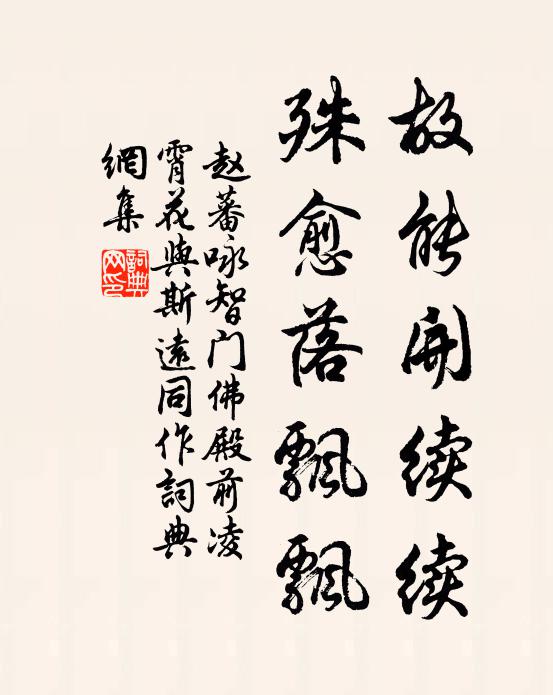 故能开续续
殊愈落飘飘
赵蕃咏智门佛殿前凌
霄花与斯远同作词典
網集
詞典網印